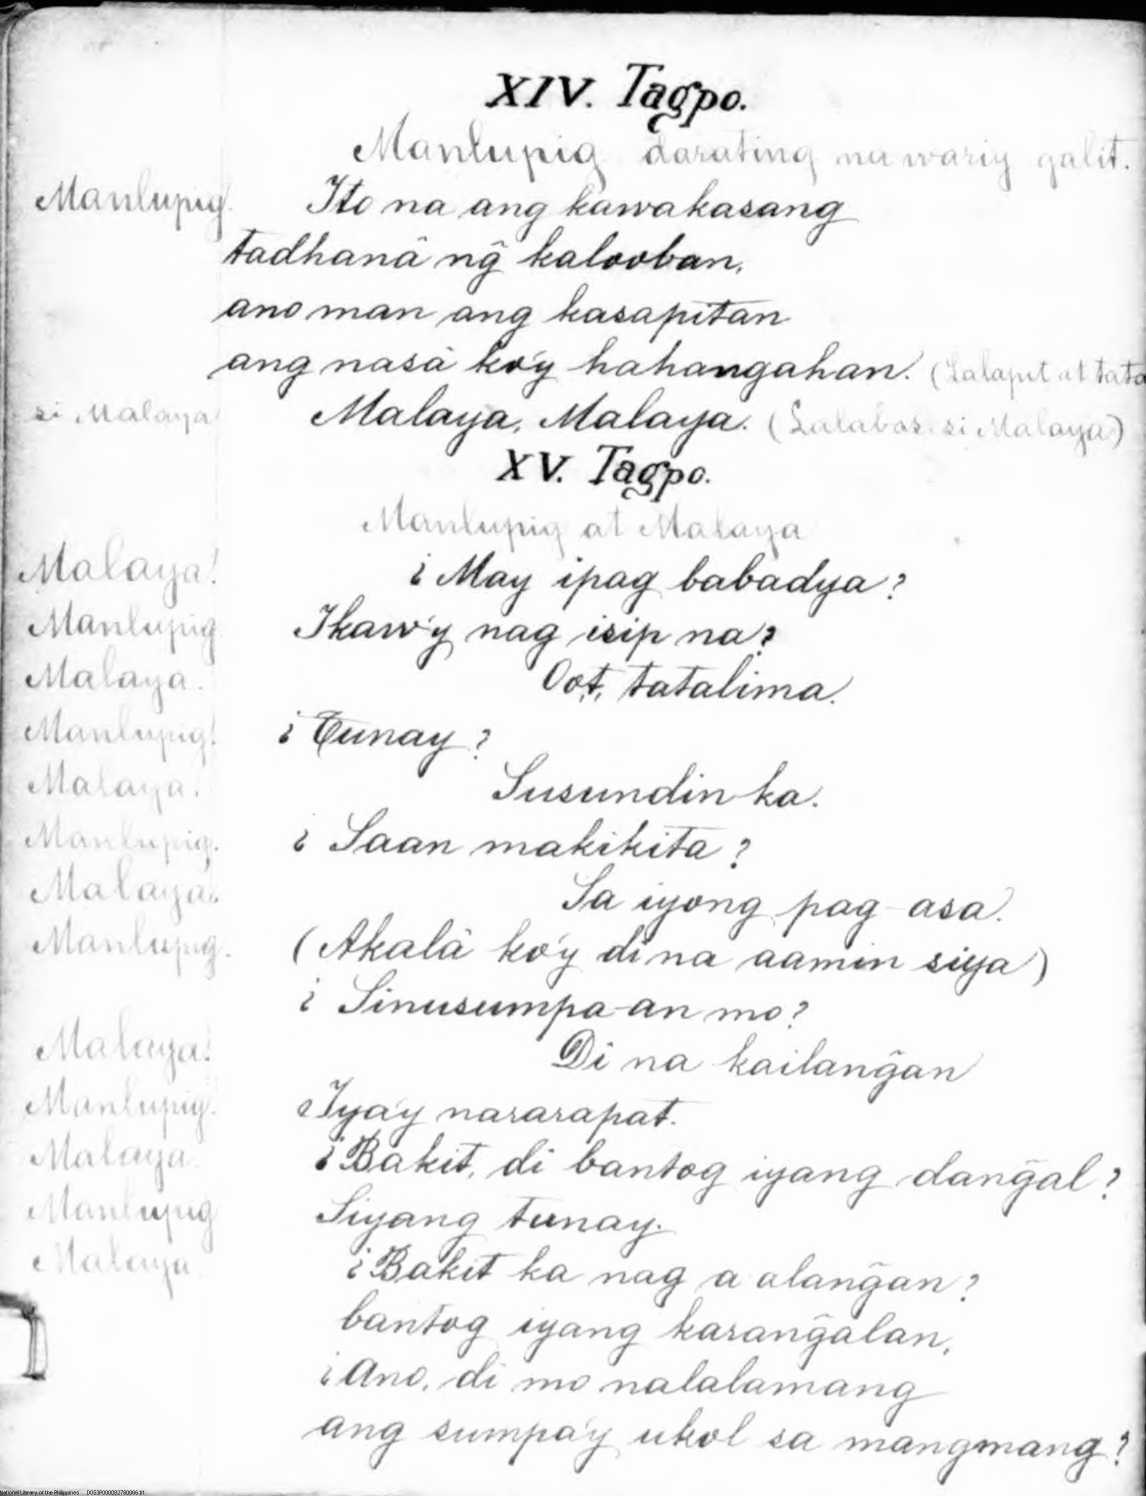 XIV. Tagpo.
Manlupig darating na wariy galit.
Manlupig. Ito na ang kawakasang
tadhanâ ng̃ kalooban,
ano man ang kasapitan
ang nasà ko'y hahangahan. (Lalapit at tata
si Malaya Malaya, Malaya. (Lalabas si Malaya)
XV. Tagpo.
Manlupig at Malaya
Malaya. ¿May ipag babadya?
Manlupig Ikaw'y nag isip na?
Malaya. Oot, tatalima.
Manlupig. ¿Tunay?
Malaya. Susundin ka.
Manlupig. ¿Saan makikita?
Malaya. Sa iyong pag-asa.
Manlupig. (Akalà ko'y di na aamin siya)
¿Sinusumpa-an mo?
Malaya. Di na kailang̃an
Manlupig. Iya'y nararapat.
Malaya. ¿Bakit, di bantog iyang dang̃al?
Manlupig Siyang tunay.
Malaya ¿Bakit ka nag a alang̃an?
bantog iyang karang̃alan,
¿Ano, di mo nalalamang
ang sumpa'y ukol sa mangmang?
National Library of the Philippines